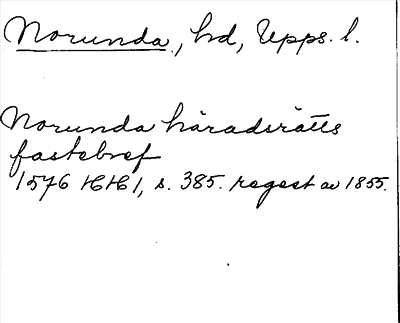 Norunda, hd, Upps. l.
Norunda häradsrätts
fastebref
1576 HHI, s. 385. regest av 1855.